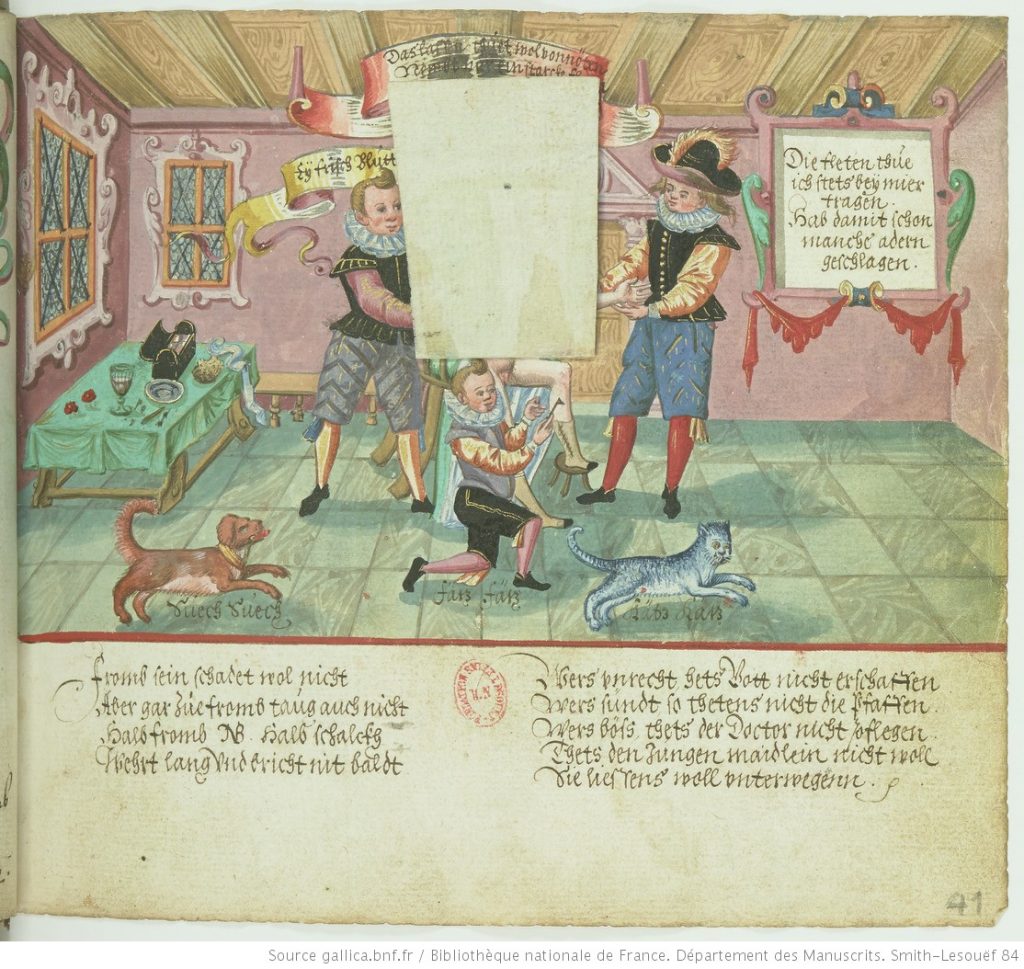 Das lassen thuet wol vonnöten
Eÿ frisch Blutt
Die fleten thue
ich stets beÿ mier
tragen.
Hab damit schon
manche adern
geschlagen.
Suech Suech
fatz fatz
Katz Katz
Fromb sein schadet wol nicht
Aber gar zue fromb taug auch nicht
Halb fromb NB. Halb schalckh
Wehrt lang vnd bricht nit baldt
Wers vnrecht hets Gott nicht erschaffen
Wers sündt so thetens nicht die Pfaffen.
Wers böss thets der Doctor nicht pflegen.
Thets den Jungen maidlein nicht woll
Sie liessens woll vnterwegenn.
41
Source gallica.bnf.fr / Bibliothèque nationale de France. Département des Manuscrits. Smith-Lesouëf 84